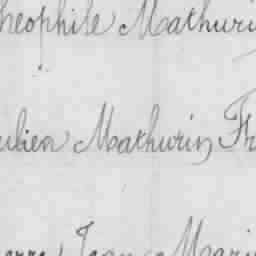 heophile Mathuri
ulien Mathurin Fr
erre Jean Mari